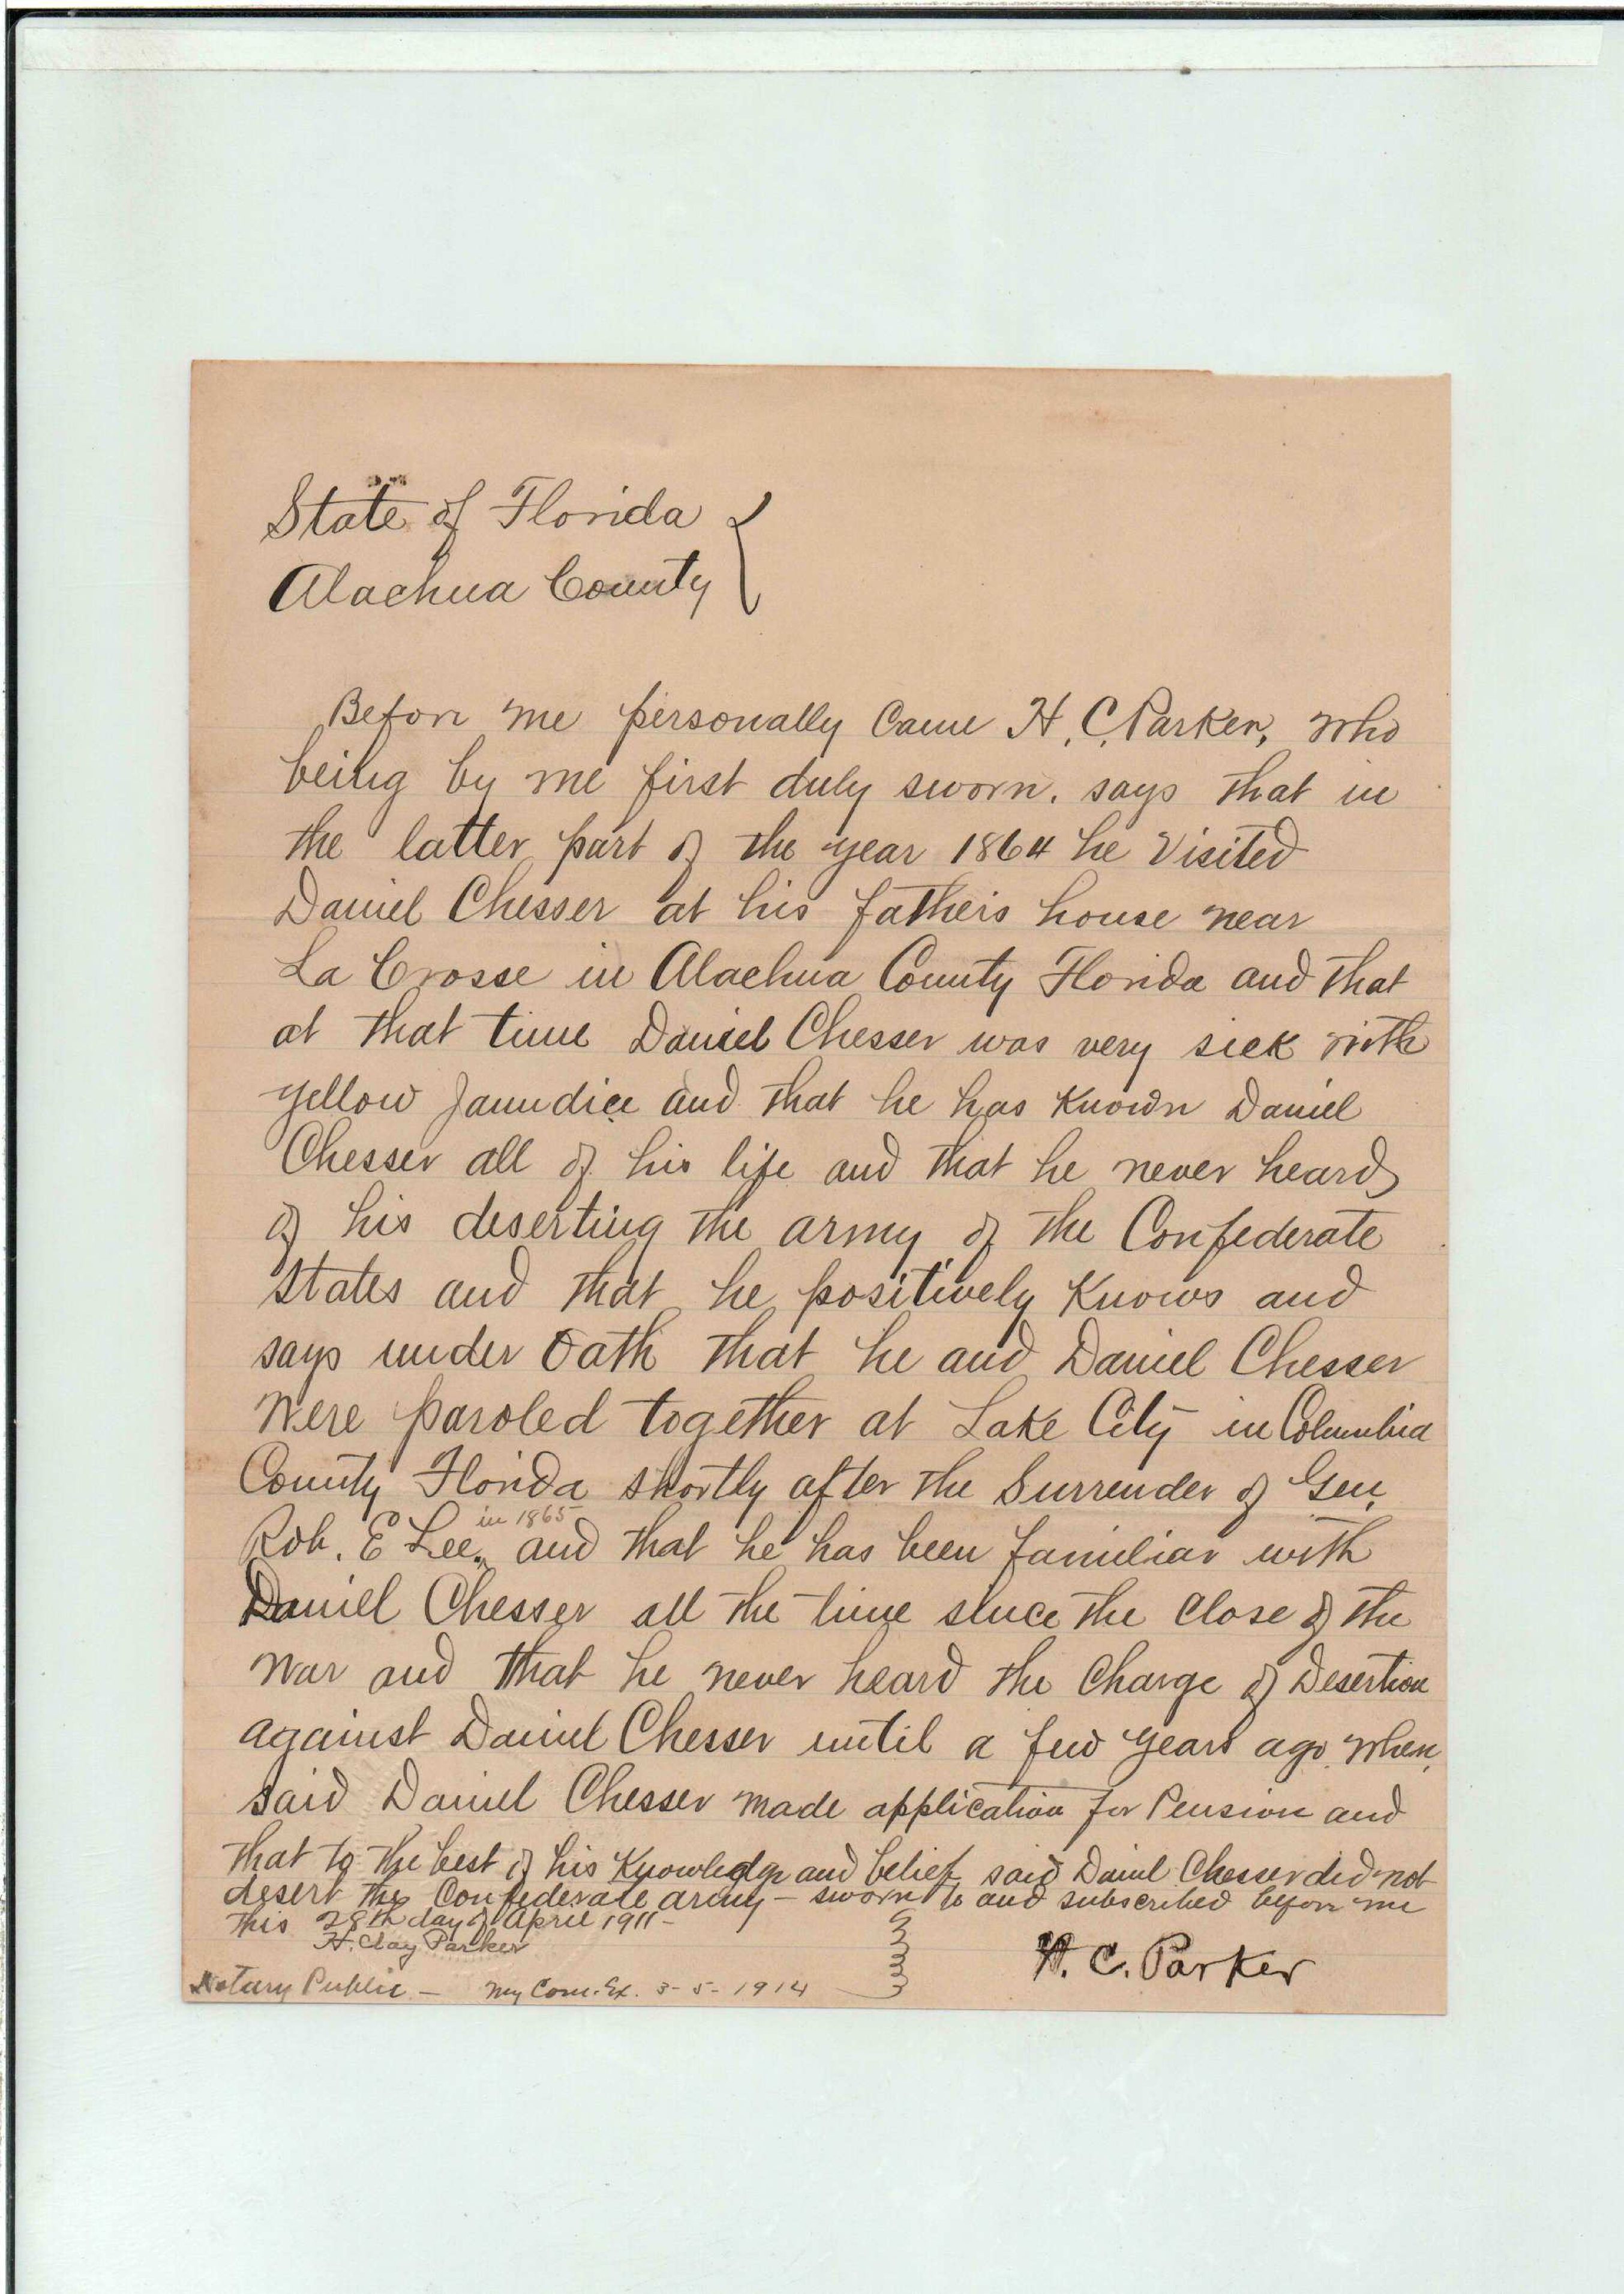 State of Florida
Alachua County
Before me personally came H. C. Parker, who
being by me first duly sworn, says that in
the latter part of the year 1864 he visited
Daniel Chesser at his father's house near
La Crosse in Alachua County Florida and that
at that time Daniel Chesser was very sick with
yellow Jaundice and that he has known Daniel
Chesser all of his life and that he never heard
of his deserting the army of the Confederate
States and that he positively knows and
says under oath that he and Daniel Chesser
were paroled together at Lake City in Columbia
County Florida shortly after the Surrender of Gen.
in 1865
Rob. E Lee, and that he has been familiar with
Daniel Chesser all the time since the close of the
war and that he never heard the charge of Desertion
against Daniel Chesser until a few years ago when,
said Daniel Chesser made application for Pension and
that to the best of his knowledge and belief said Daniel Chesser did not
desert the Confederate army - sworn to and subscribed before me
this 28th day of April 1911 -
H. Clay Parker
H. C. Parker
Notary Public - My Com. Ex. 3-5-1914